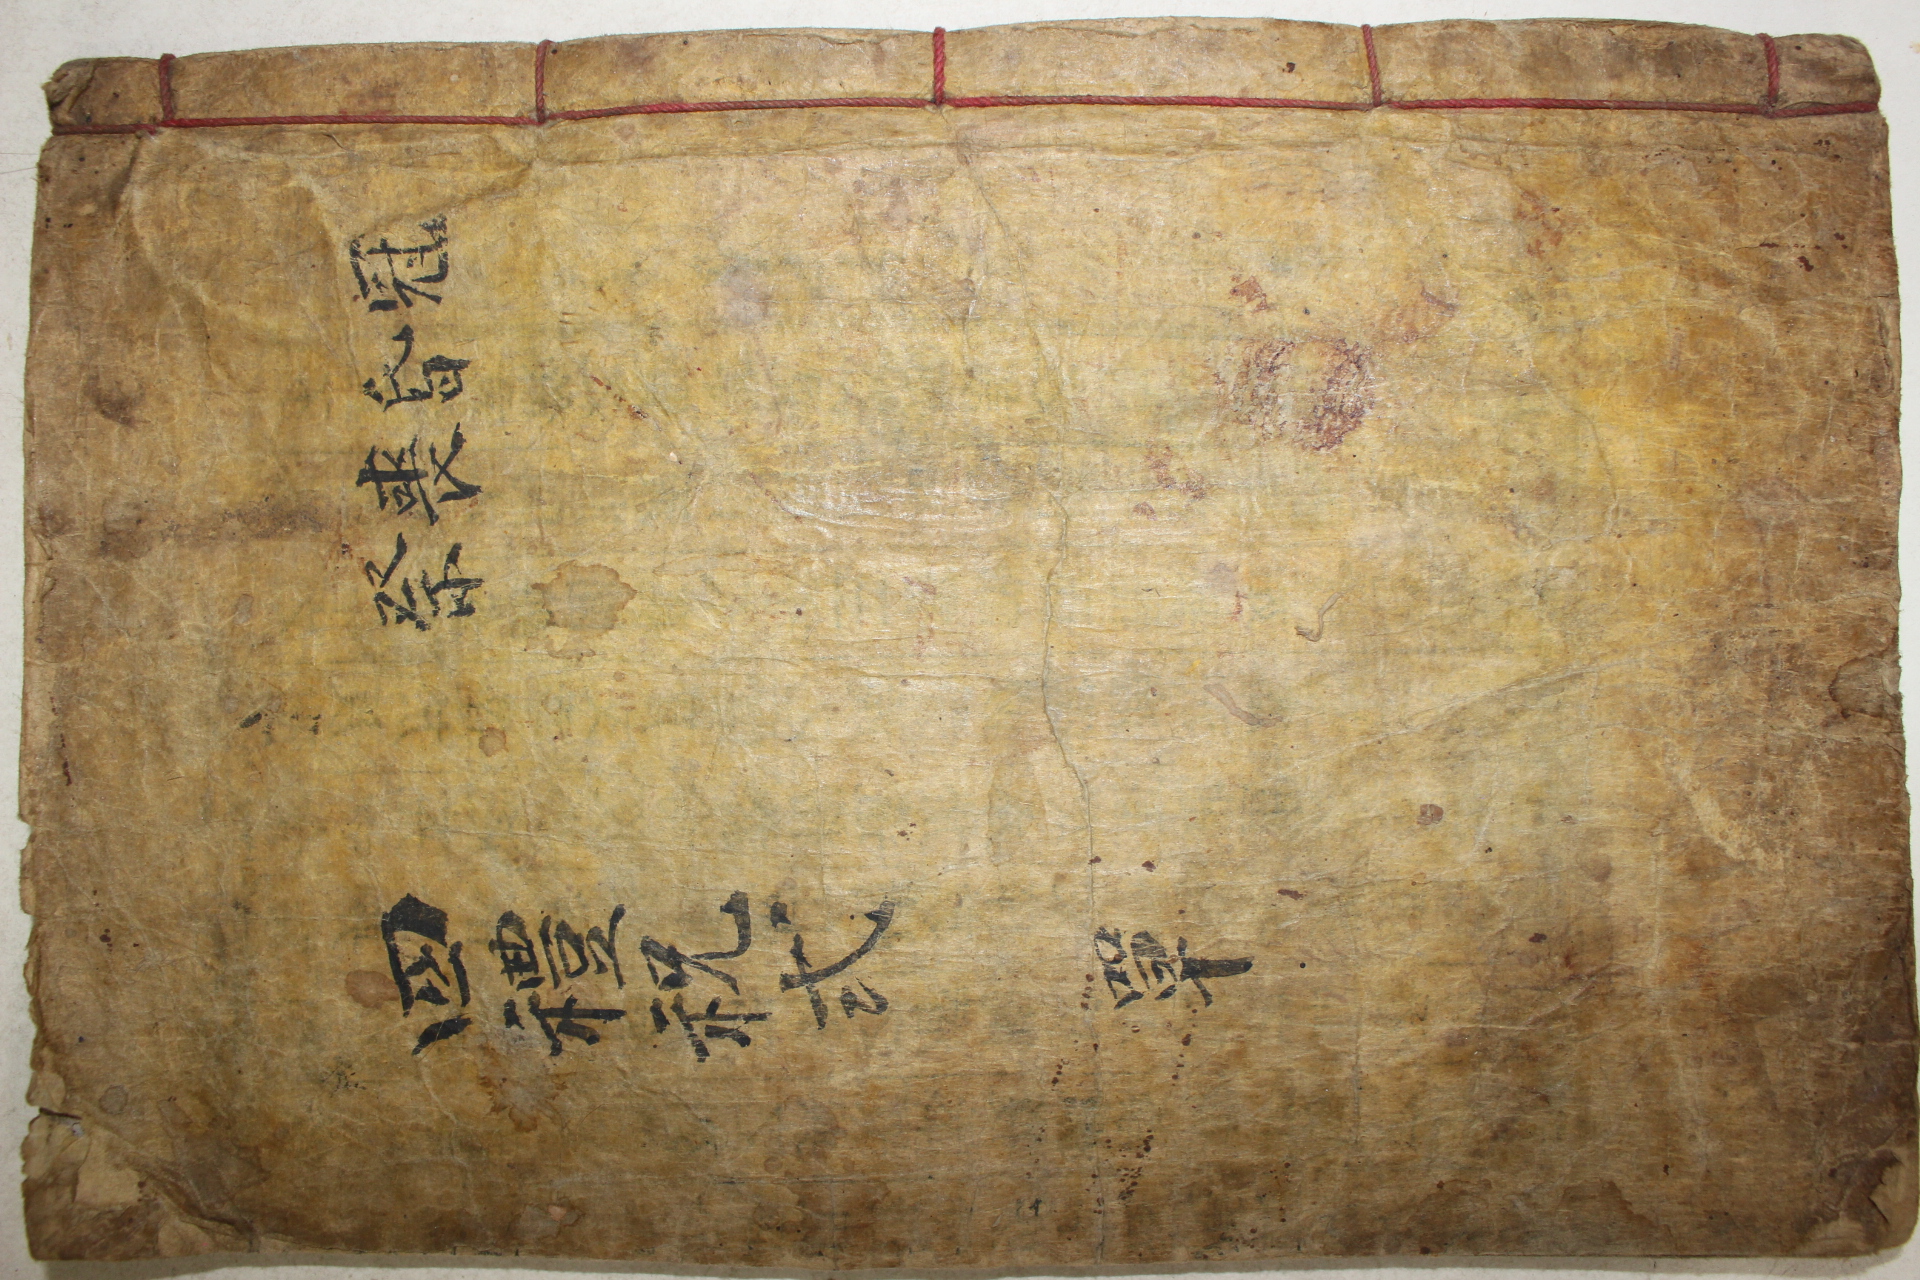 冠昏喪祭
四禮祝式 單